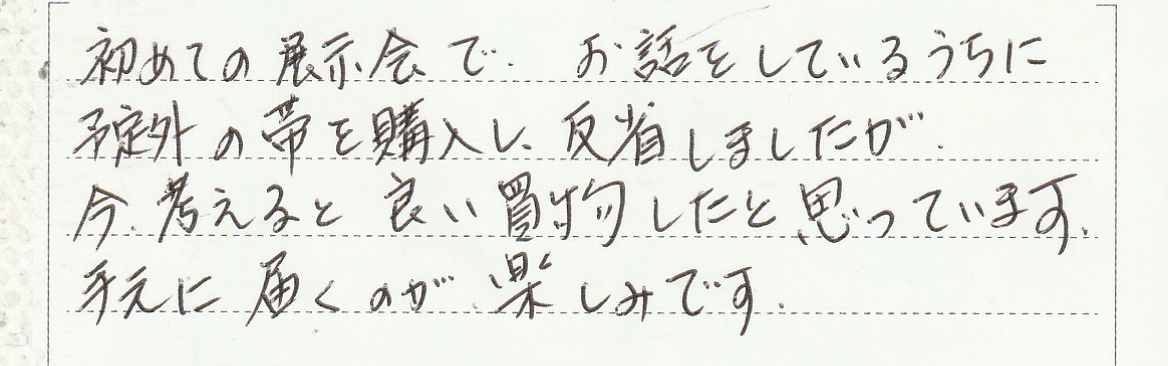 初めての展示会で、お話をしているうちに
予定外の帯を購入し、反省しましたが、
今、考えると良い買物したと思っています。
手元に届くのが、楽しみです。